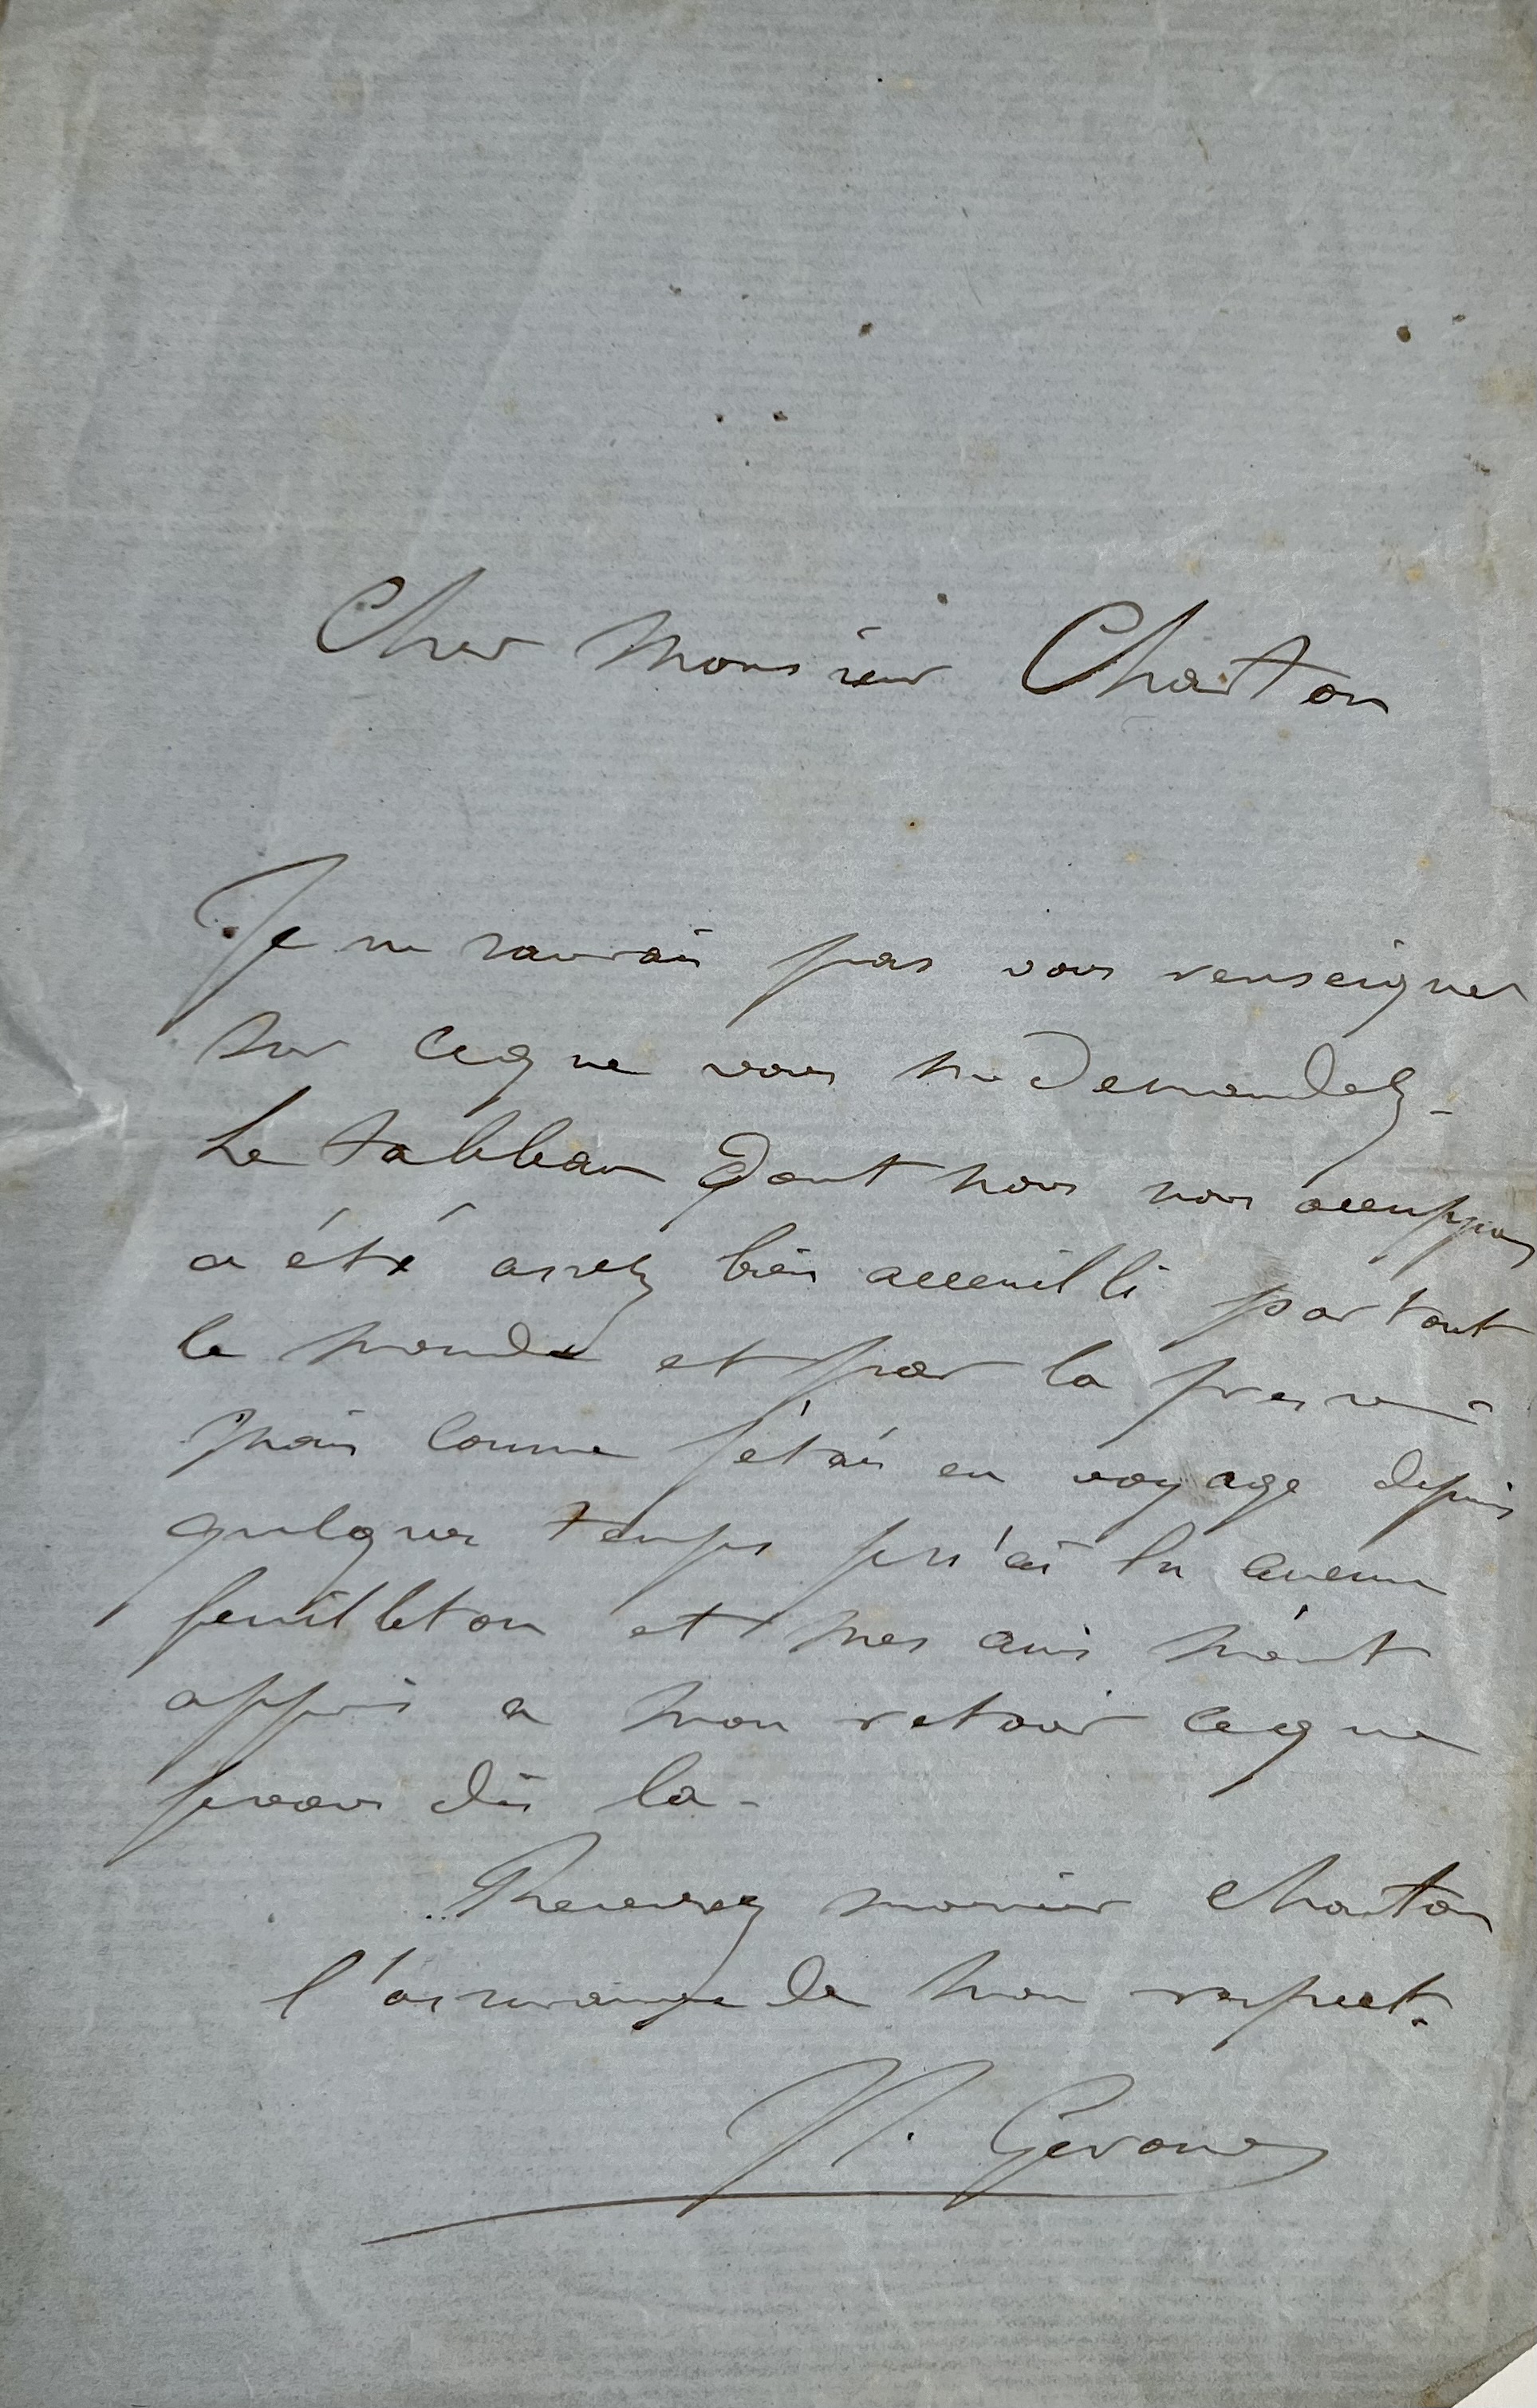 Cher Monsieur Charton
Je ne saurais pas vous renseigner
sur ceque vous me demandez -
Le tableau dont nous nous occuppons
a été assez bien acceuilli par tout
le monde et par la presse -
Mais comme j'étais en voyage depuis
quelques temps je n'ai lu aucun
feuilleton et mes amis m'ont
appris a mon retour ceque
je vous dis la -
Recevez monsieur Charton
l'assurance de mon respect.
Gerome